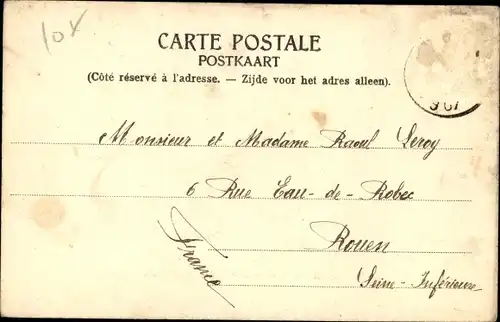 10x
CARTE POSTALE
POSTKAART
(Côté réservé à l'adresse. — Zijde voor het adres alleen).
Monsieur et Madame Raoul Leroy
6 Rue Eau-de-Robec
Rouen
Seine-Inférieure
France